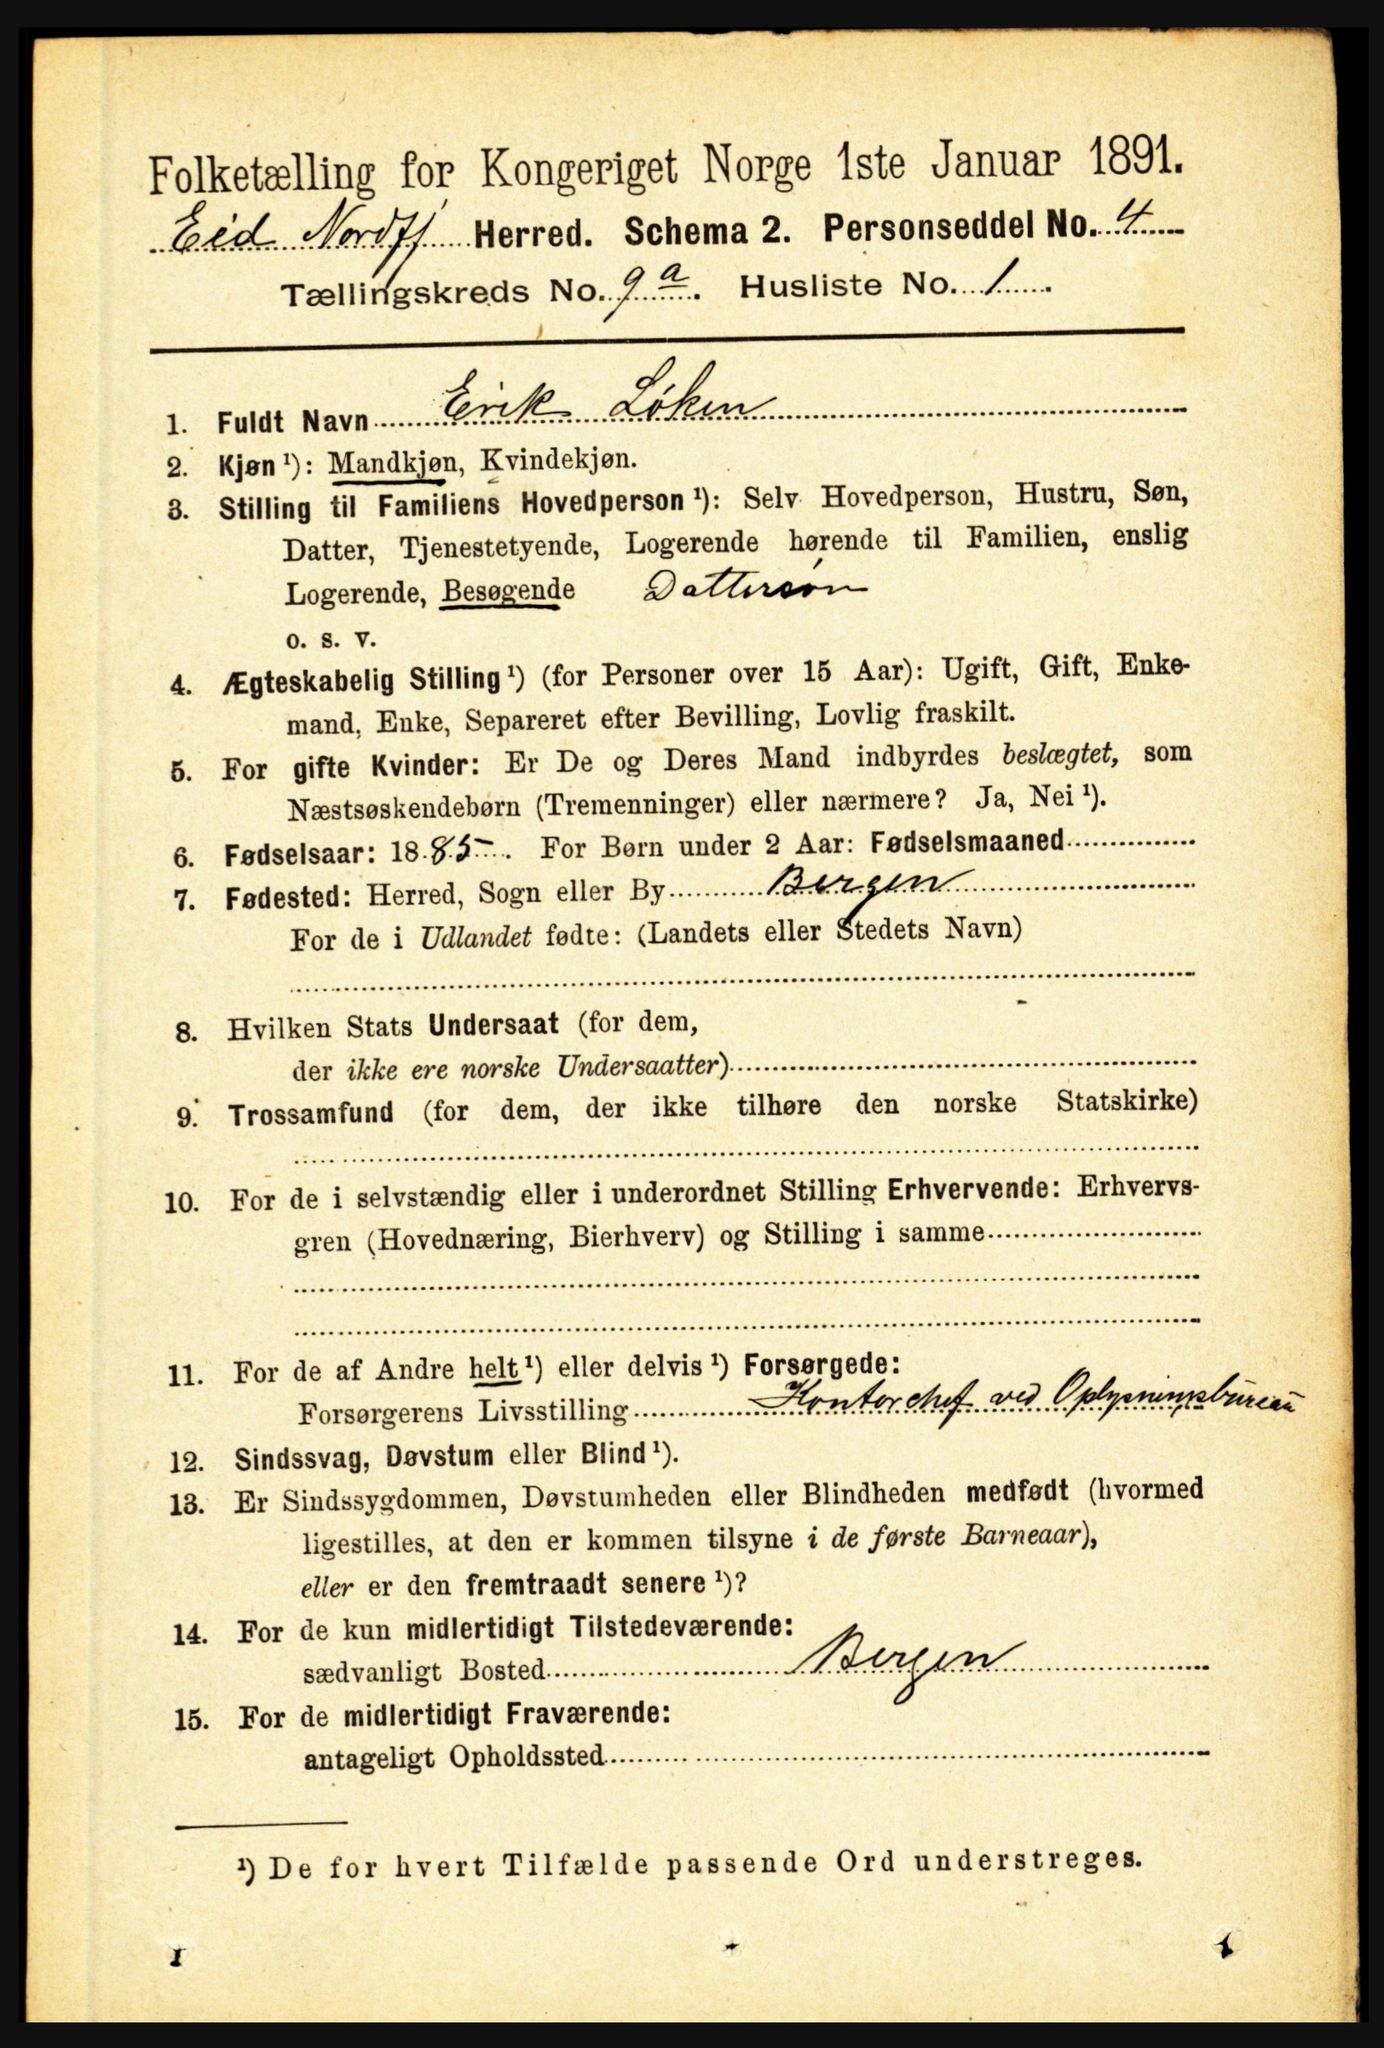 Folketælling for Kongeriget Norge 1ste Januar 1891.
Eid Nordfj Herred. Schema 2. Personseddel No. 4
Tællingskreds No. 9 a. Husliste No. 1.
1. Fuldt Navn Erik Løken
2. Kjøn ¹): Mandkjøn, Kvindekjøn.
3. Stilling til Familiens Hovedperson ¹): Selv Hovedperson, Hustru, Søn,
Datter, Tjenestetyende, Logerende hørende til Familien, enslig
Logerende, Besøgende Dattersøn
o. s. v.
4. Ægteskabelig Stilling ¹) (for Personer over 15 Aar): Ugift, Gift, Enke-
mand, Enke, Separeret efter Bevilling, Lovlig fraskilt.
5. For gifte Kvinder: Er De og Deres Mand indbyrdes beslægtet, som
Næstsøskendebørn (Tremenninger) eller nærmere? Ja, Nei ¹).
6. Fødselsaar: 1885. For Børn under 2 Aar: Fødselsmaaned
7. Fødested: Herred, Sogn eller By Bergen
For de i Udlandet fødte: (Landets eller Stedets Navn)
8. Hvilken Stats Undersaat (for dem,
der ikke ere norske Undersaatter)
9. Trossamfund (for dem, der ikke tilhøre den norske Statskirke)
10. For de i selvstændig eller i underordnet Stilling Erhvervende: Erhvervs-
gren (Hovednæring, Bierhverv) og Stilling i samme
11. For de af Andre helt ¹) eller delvis ¹) Forsørgede:
Forsørgerens Livsstilling Kontorchef ved Oplysningsbureau
12. Sindssvag, Døvstum eller Blind ¹).
13. Er Sindssygdommen, Døvstumheden eller Blindheden medfødt (hvormed
ligestilles, at den er kommen tilsyne i de første Barneaar),
eller er den fremtraadt senere ¹)?
14. For de kun midlertidigt Tilstedeværende:
sædvanligt Bosted Bergen
15. For de midlertidigt Fraværende:
antageligt Opholdssted
¹) De for hvert Tilfælde passende Ord understreges.